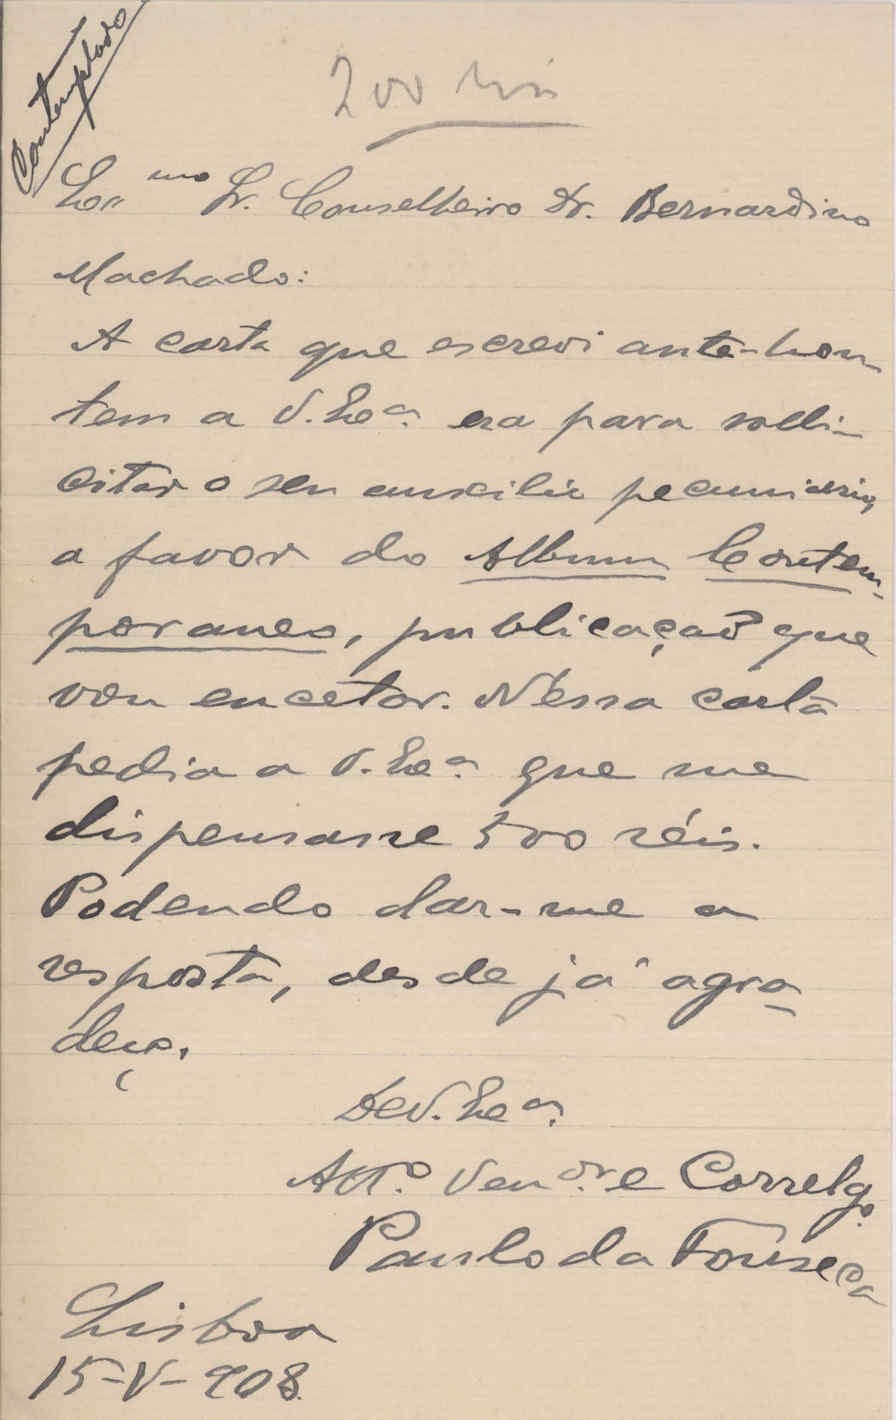 Contemplado
200 réis
Ex.mo Sr. Conselheiro Dr. Bernardino
Machado:
A carta que escrevi ante-hon-
tem a V. Ex.a era para solli-
citar o seu auxilio pecuniario,
a favor do Album Contem-
poraneo, publicação que
vou encetar. N'essa carta
pedia a V. Ex.a que me
dispensasse 500 réis.
Podendo dar-me a
resposta, desde já agra-
deço.
De V. Ex.a
Att.o Ven.or e Correlg.o
Paulo da Fonseca
Lisboa
15-V-908.